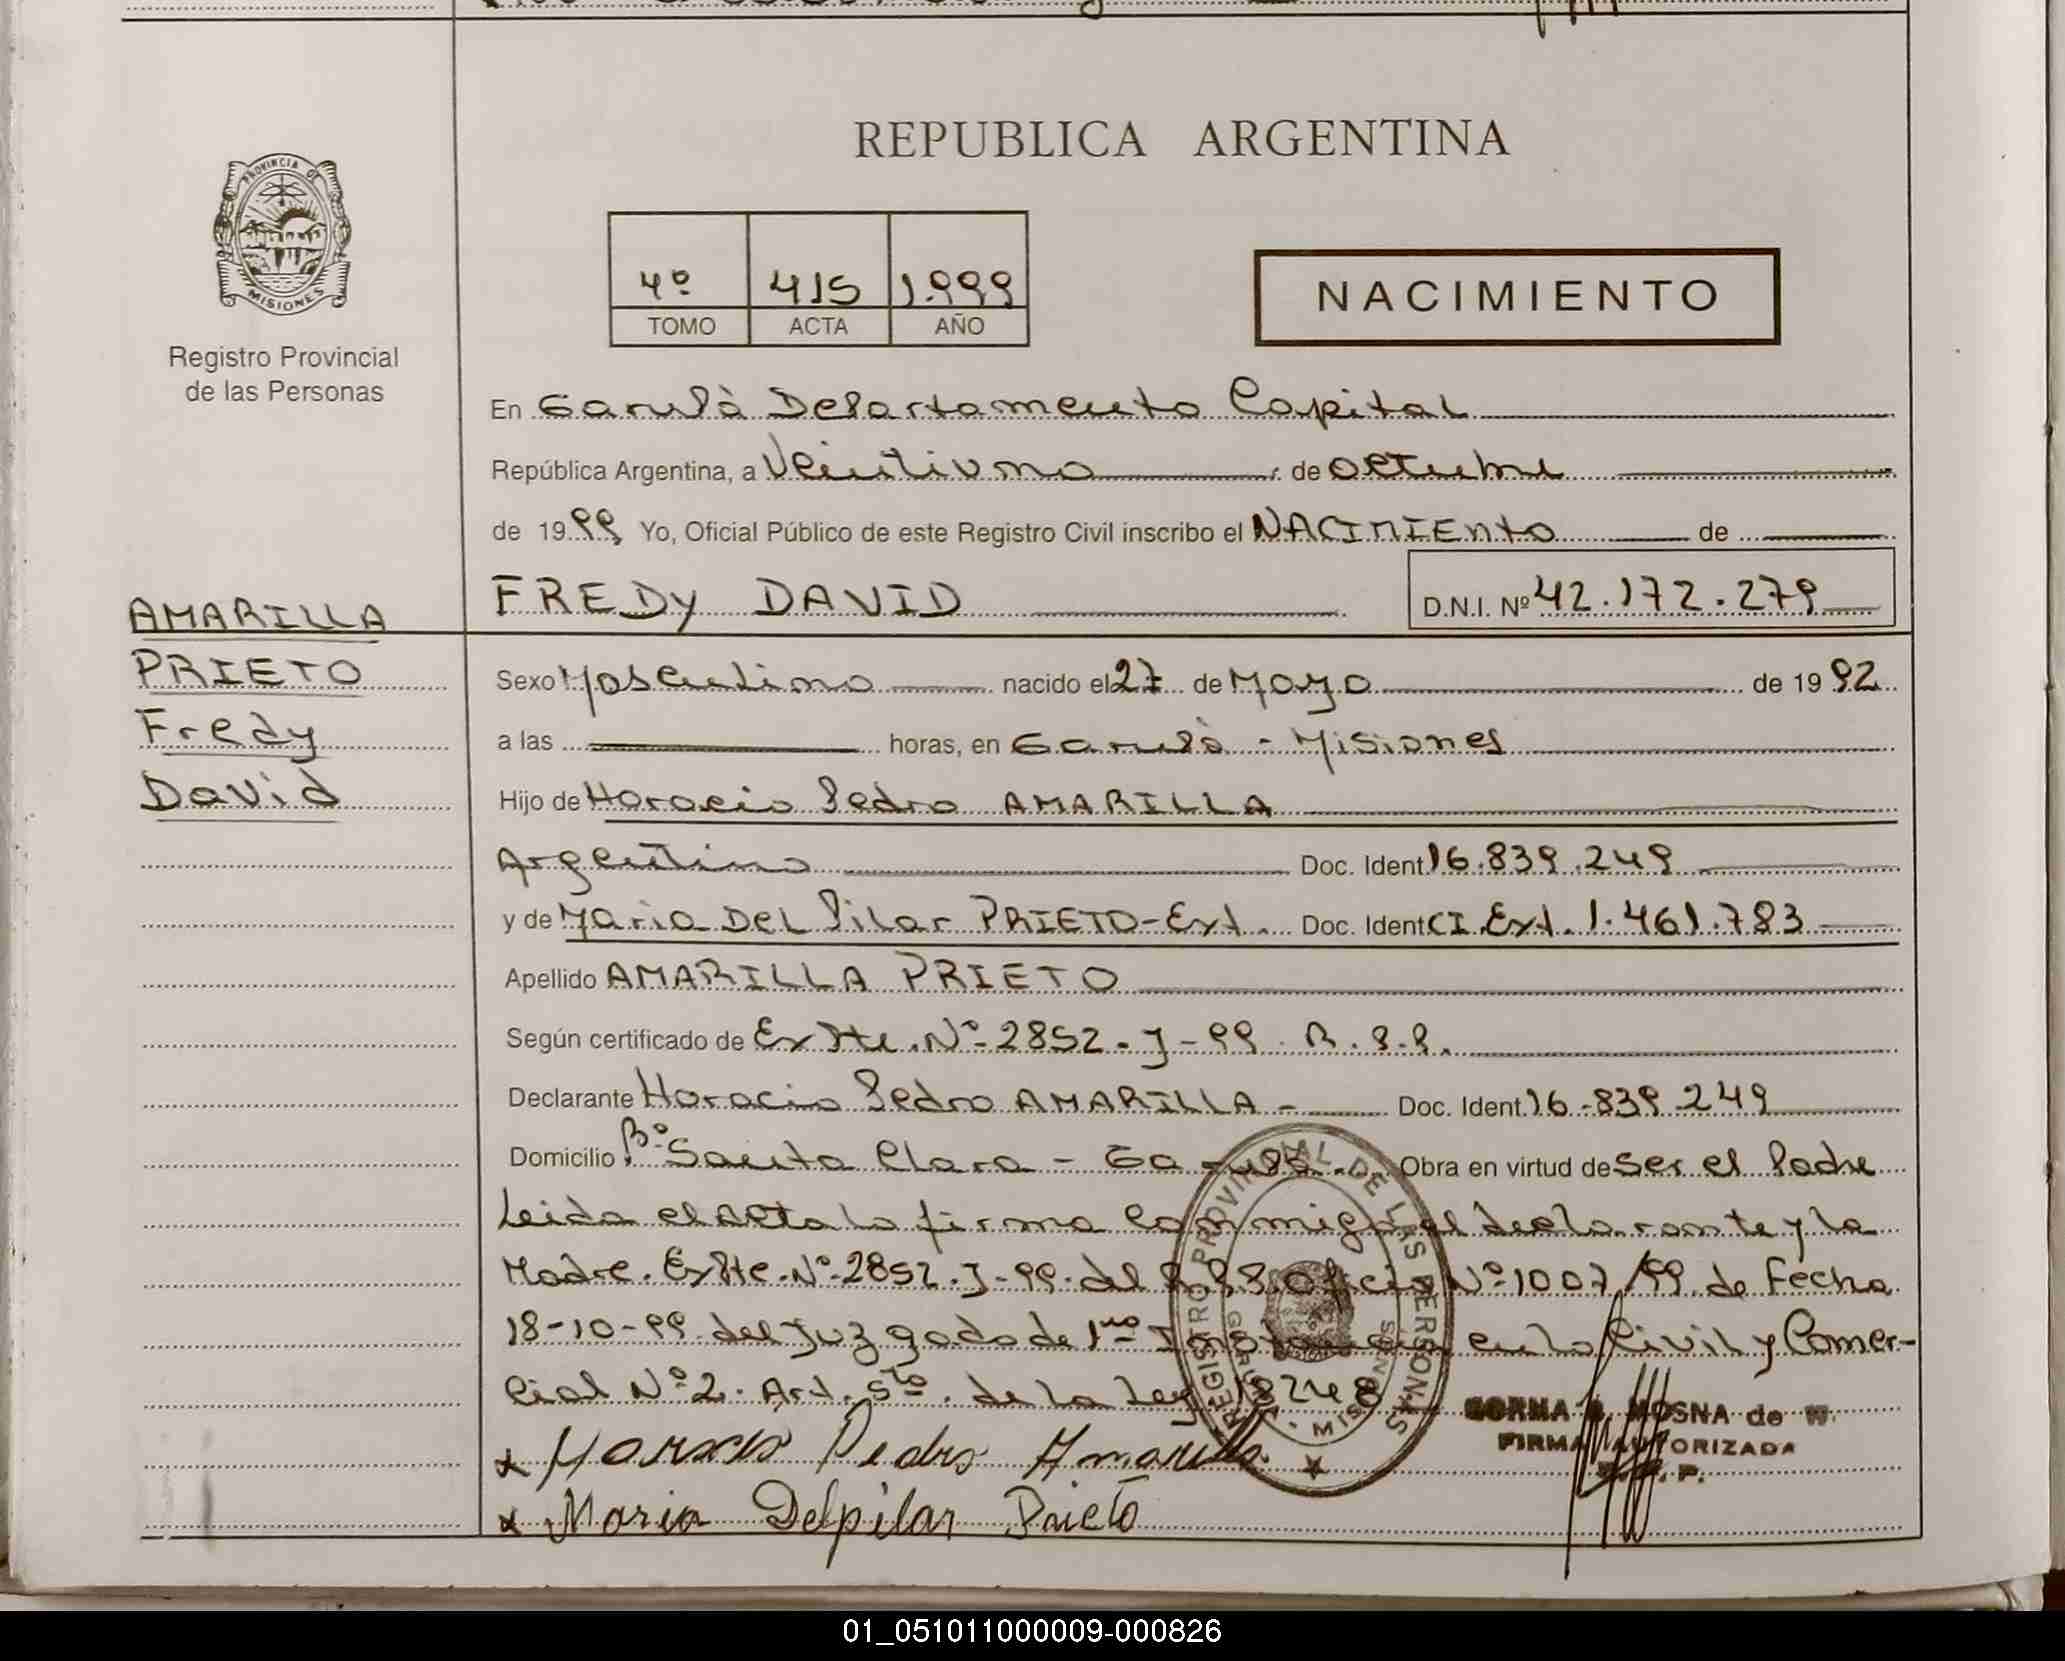 REPUBLICA ARGENTINA
PROVINCIA DE
MISIONES
Registro Provincial
de las Personas
4º 415 1.999
TOMO ACTA AÑO
NACIMIENTO
En Garupà Departamento Capital
República Argentina, a Veintiuno de octubre
de 1999 Yo, Oficial Público de este Registro Civil inscribo el NACIMIENTO de
FREDY DAVID D.N.I. Nº 42.172.279
AMARILLA
PRIETO
Fredy
David
Sexo Masculino nacido el 27 de Mayo de 1992
a las horas, en Garupà - Misiones
Hijo de Horacio Pedro AMARILLA
Argentino Doc. Ident. 16.839.249
y de Maria Del Pilar PRIETO-Ext. Doc. Ident CI.Ext. 1.461.783
Apellido AMARILLA PRIETO
Según certificado de Expte. Nº 2852-J-99 R.P.P.
Declarante Horacio Pedro AMARILLA - Doc. Ident. 16-839.249
Domicilio Bº Santa Clara - Garupà. Obra en virtud de ser el Padre
Leida el acta la firma conmigo el declarante y la
Madre. Expte. Nº 2852-J-99 del R.P.P. Oficio Nº 1007/99 de Fecha
18-10-99 del Juzgado de 1ra Instancia en lo Civil y Comer-
cial Nº 2. Art. 5to. de la Ley 18248
REGISTRO PROVINCIAL DE LAS PERSONAS
MISIONES
MOSNA de W.
FIRMA AUTORIZADA
x Horacio Pedro Amarilla
x Maria Delpilar Prieto
01_051011000009-000826